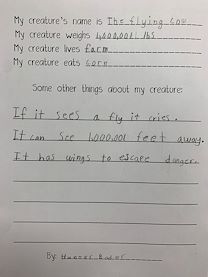 My creature's name is The flying cow
My creature weighs 1,000,001 lbs
My creature lives farm
My creature eats corn
Some other things about my creature:
If it sees a fly it cries.
It can see 1,000,001 feet away.
It has wings to escape danger.
By: